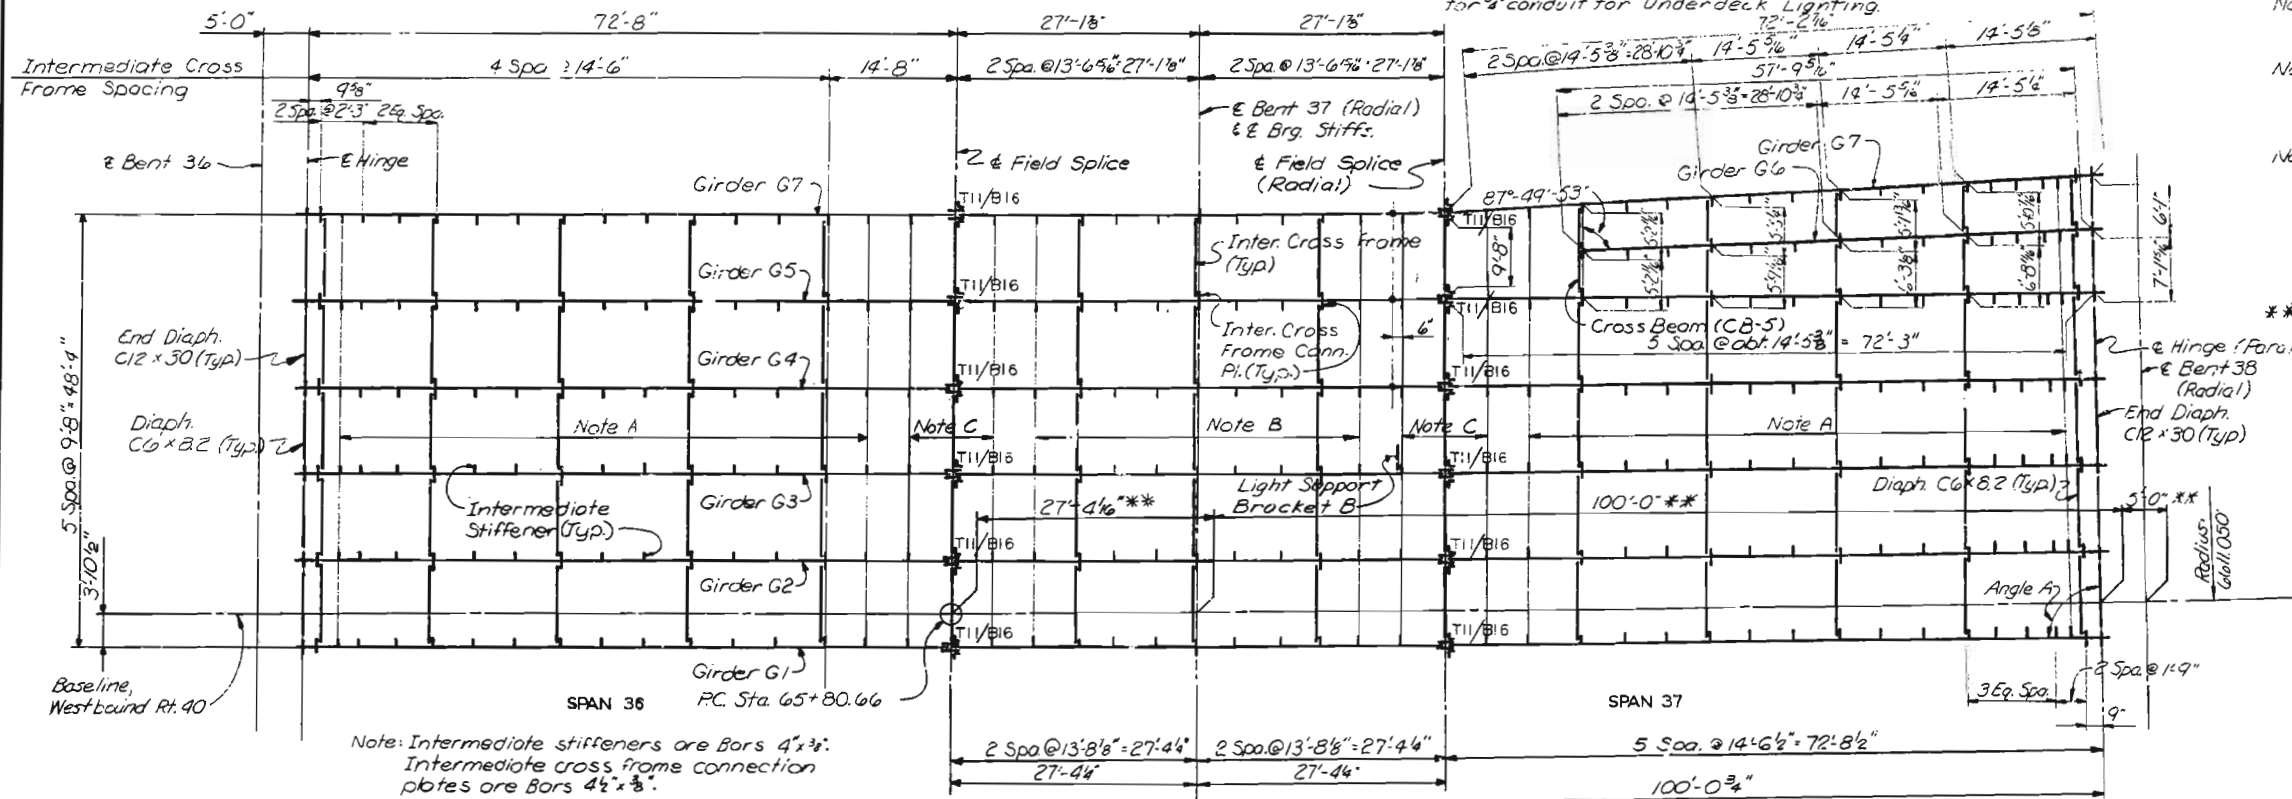 for 4" conduit for Underdeck Lighting.
5'-0"
72'-8"
27'-1⅛"
27'-1⅛"
72'-2 7/16"
Intermediate Cross
Frame Spacing
4 Spa @ 14'-6"
14'-8"
2 Spa.@13'-6 9/16"=27'-1⅛"
2 Spa.@13'-6 9/16"=27'-1⅛"
2 Spa.@14'-5⅜"=28'-10¾"
14'-5 5/16"
14'-5¼"
14'-5⅛"
57'-9 5/16"
2 Spa. @ 14'-5⅜"=28'-10¾"
14'-5 5/16"
14'-5¼"
9⅝"
2 Spa.@2'-3"
2 Eq. Spa.
℄ Bent 36
℄ Hinge
℄ Field Splice
℄ Bent 37 (Radial)
& ℄ Brg. Stiffs.
℄ Field Splice
(Radial)
Girder G7
Girder G6
Girder G7
T11/B16
87°-49'-53"
T11/B16
9'-8"
6'-1"
7'-1 15/16"
Inter. Cross Frame
(Typ.)
Girder G5
T11/B16
T11/B16
6"
End Diaph.
C12 x 30 (Typ.)
Inter. Cross
Frame Conn.
Pl. (Typ.)
Cross Beam (CB-5)
5 Spa. @ abt. 14'-5⅜" = 72'-3"
**
℄ Hinge
℄ Bent 38
(Radial)
End Diaph.
C12 x 30 (Typ)
Girder G4
T11/B16
T11/B16
5 Spa.@ 9'-8"=48'-4"
Diaph.
C6 x 8.2 (Typ.)
Note A
Note C
Note B
Note C
Note A
T11/B16
T11/B16
Girder G3
Intermediate
Stiffener (Typ.)
27'-4 1/16" **
Light Support
Bracket B
100'-0" **
Diaph. C6 x 8.2 (Typ.)
5'-0" **
T11/B16
T11/B16
Girder G2
3'-10½"
Angle A
Radius:
6611.050'
T11/B16
T11/B16
Girder G1
P.C. Sta. 65+80.66
Baseline,
Westbound Rt. 40
SPAN 36
SPAN 37
3 Eq. Spa.
2 Spa.@ 1'-9"
9"
Note: Intermediate stiffeners are Bars 4"x⅜".
Intermediate cross frame connection
plates are Bars 4½"x⅜".
2 Spa.@13'-8⅛"=27'-4¼"
2 Spa.@13'-8⅛"=27'-4¼"
5 Spa. @ 14'-6½"=72'-8½"
27'-4¼"
27'-4¼"
100'-0¾"